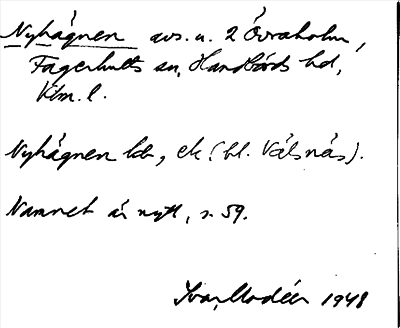 Nyhagnen avs. u. 2 Övraholm,
Fagerhults sn, Handbörds hd,
Klm. l.
Nyhagnen lb, ek (bl. Välsnäs).
Namnet är nytt, s. 59.
Ivar Modéer 1948